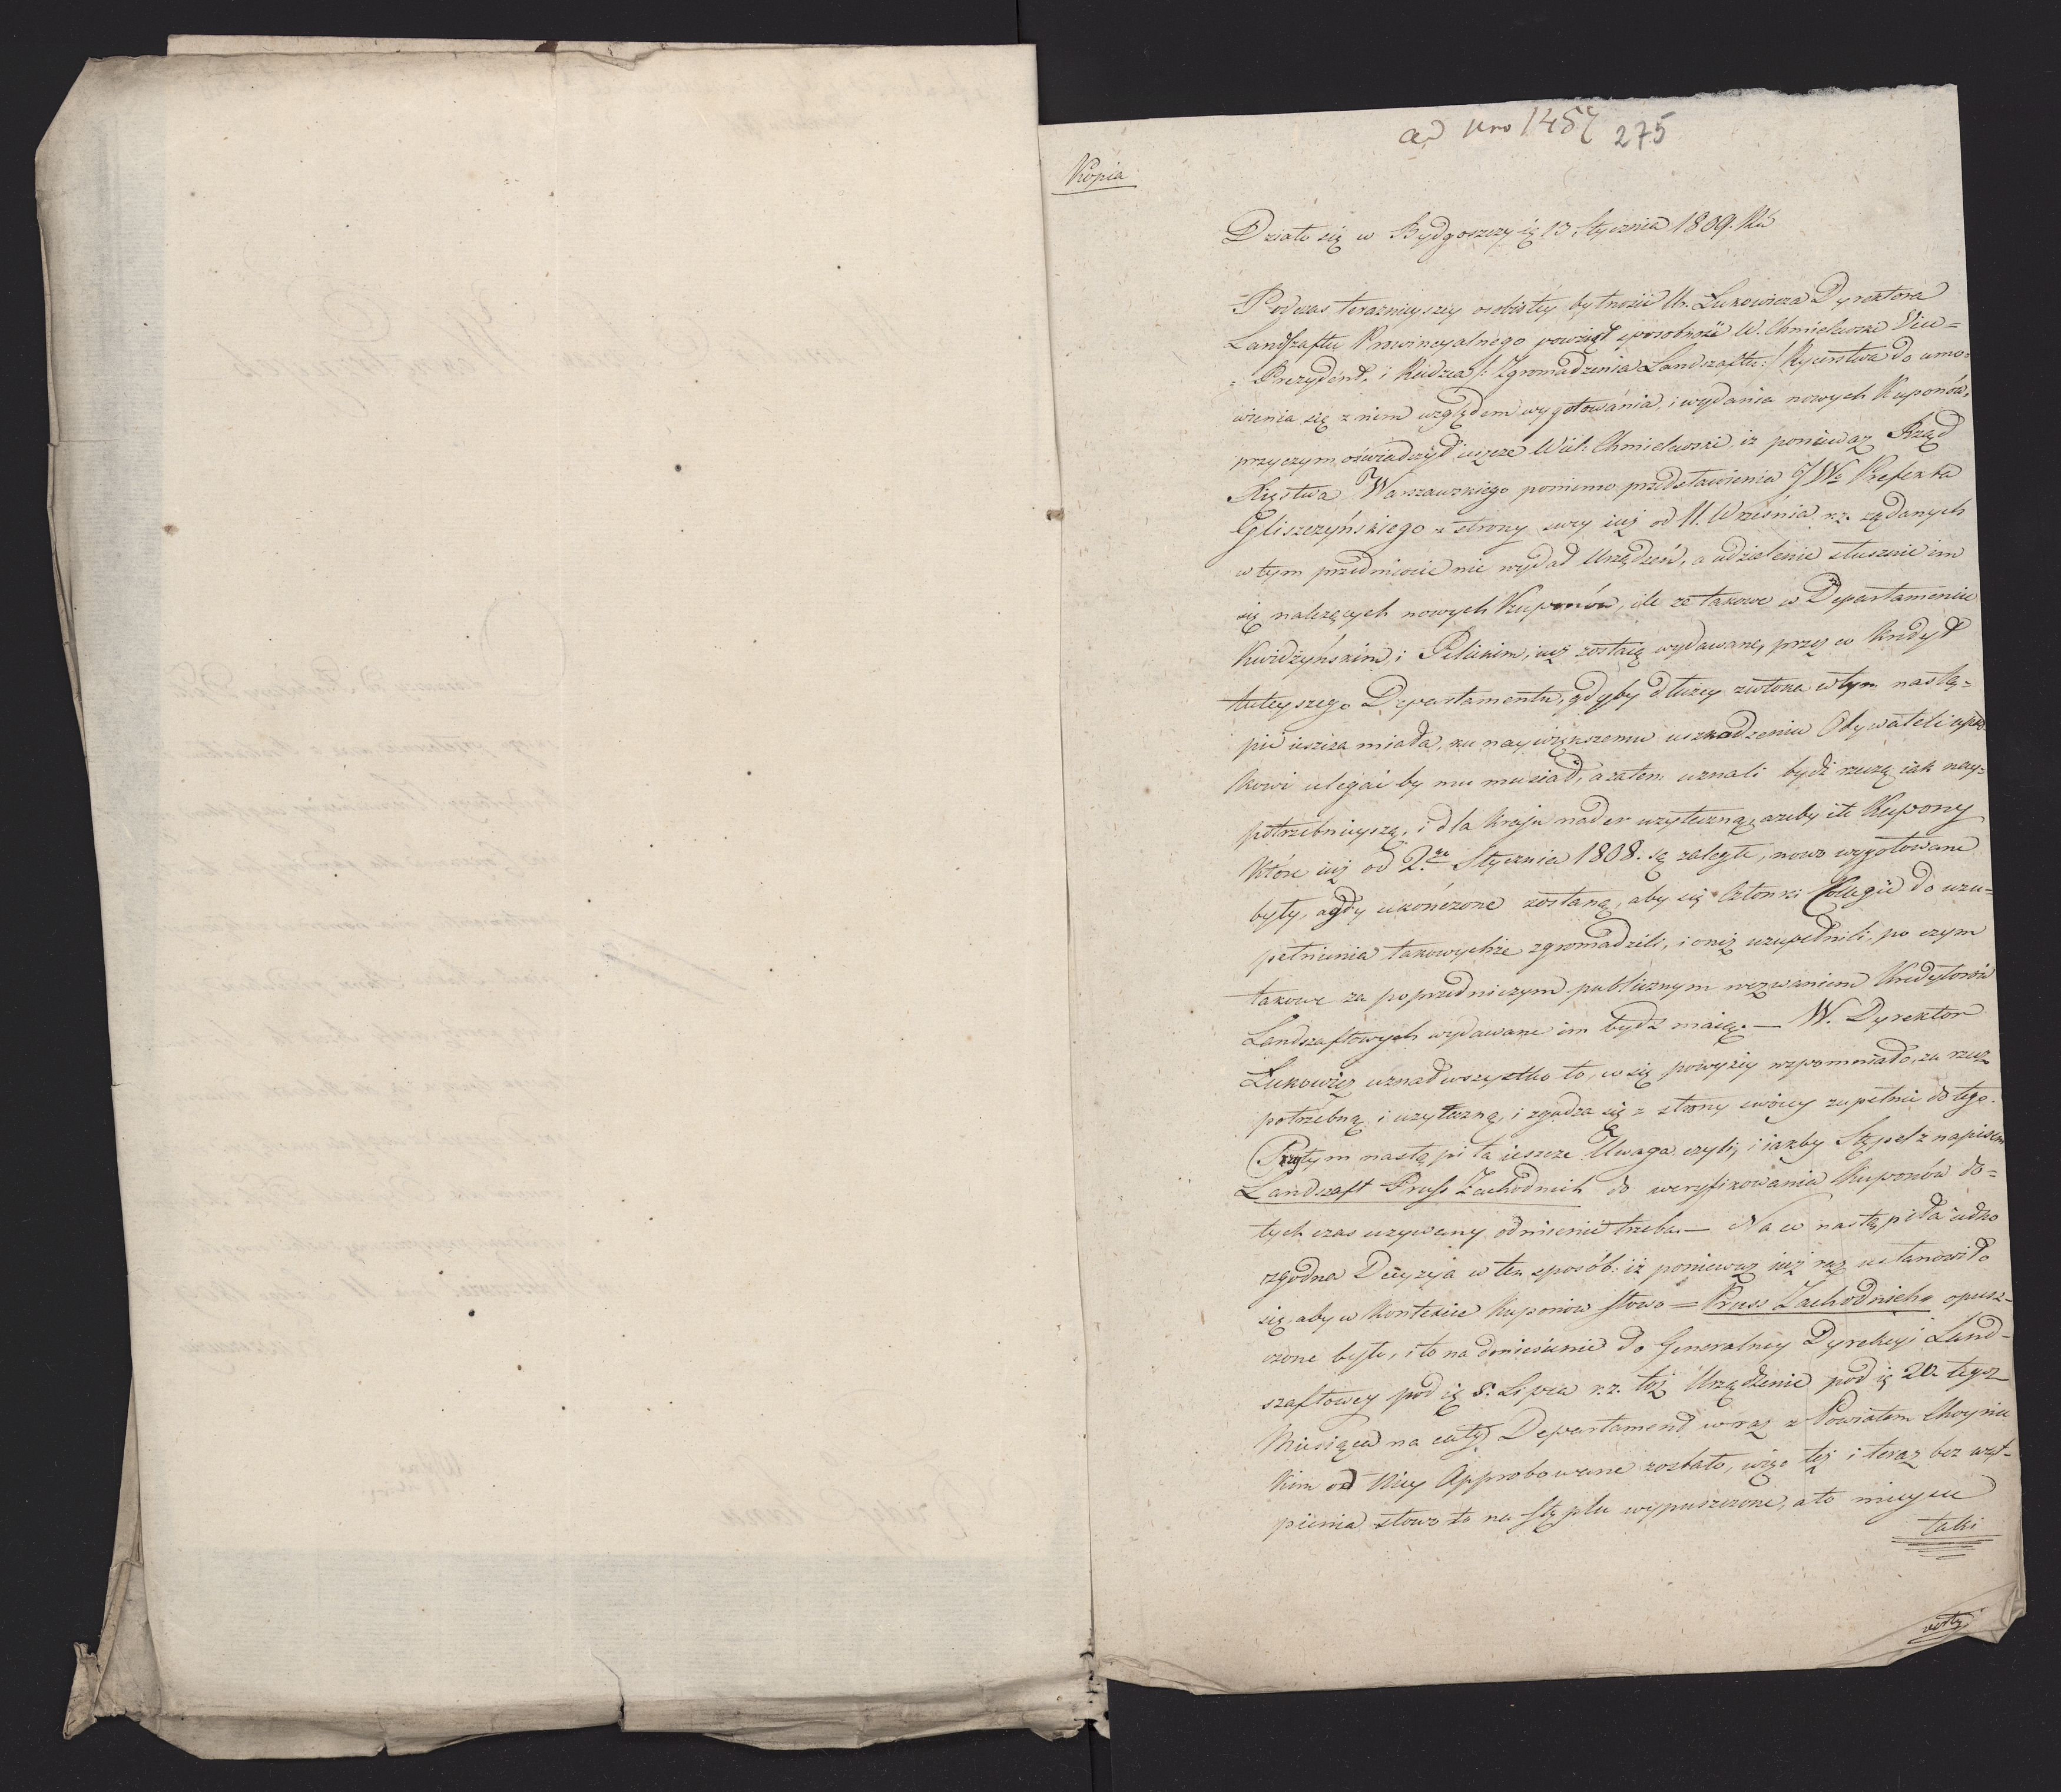 ad Nro 1457
275
Kopia
Działo się w Bydgoszczy ię 13 Stycznia 1809. Ru
Podczas teraznieyszey osobistey bytności Ur. Lukowicza Dyrektora
Landszaftu Prowincyalnego powziął sposobność W. Chmielewski Vice=
=Prezydent, i Radzca /: Zgromadzenia Landszaftu :/ Rycerstwa do umo=
wienia się z nim względem wygotowania, i wydania nowych Kuponów,
przyczym oświadczył ieszcze Wiel: Chmielewski, iż poniewaz Rząd
Xięstwa Warszawskiego pomimo przedstawienia JWo Prefekta
Gliszczyńskiego z strony swey iuż od 11. Września r.z. ządanych
w tym przedmiocie nie wydał Urządzeń, a udzielenie słusznie im
się nalezących nowych Kuponów, ile ze takowe w Departamencie
Kwidzyńskim i Pilskim, iuż zostaią wydawane, przez co Kredyt
tuteyszego Departamentu, gdyby dłuzey zwłoka w tym nastą=
pić ieszcze miała, ku naywiększemu uszkodzeniu Obywateli upad
kowi ulegać by mu musiał, azatem uznali bydź rzeczą iak nay=
potrzebnieyszą, i dla Kraju nader uzyteczną, azeby te Kupony
które iuż od 2.go Stycznia 1808. są zaległe, nowo wygotowane
były, a gdy ukończone zostaną, aby się Członki Collegii do uzu=
pełnienia takowychże zgromadzili, i oneż uzupełnili, po czym
takowe za poprzedniczym publicznym wezwaniem Kredytorów
Landszaftowych wydawane im bydź maią. — W. Dyrektor
Lukowicz uznał wszystko to, co się powyżey wzpomniało, za rzecz
potrzebną i uzyteczną, i zgadza się z strony swoiey zupełnie do tego.
Przytym nastąpiła ieszcze Uwaga czyli, i iakby Stępel z napisem
Landszaft Pruss Zachodnich do weryfikowania Kuponów do=
tych czas uzywany odmienić trzeba. — Na co nastąpiła iedno
zgodna Decyzya w ten sposób: iż poniewaz iuż raz ustanowiło
się, aby w Kontexcie Kuponów słowo = Pruss Zachodnich = opusz=
czone było, i to na doniesienie do Generalney Dyrekcyi Land=
szaftowey pod ię 8. Lipca r.z. toż Urządzenie pod ię 20 tegoż
Miesiąca na cały Departament wraz z Powiatem Choynic
kim od Niey Approbowane zostało, więc też i teraz bez wąt=
pienia słowo to na Stęplu wypuszczone, a to mieysce
taki